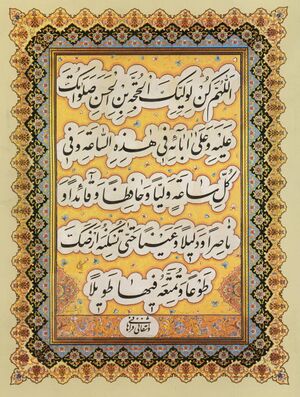 اللهم كن لوليك الحجة بن الحسن صلواتك
عليه وعلى ابائه في هذه الساعة وفي
كل ساعة وليا وحافظا وقائدا و
ناصرا ودليلا وعينا حتى تسكنه ارضك
طوعا وتمتعه فيها طويلا